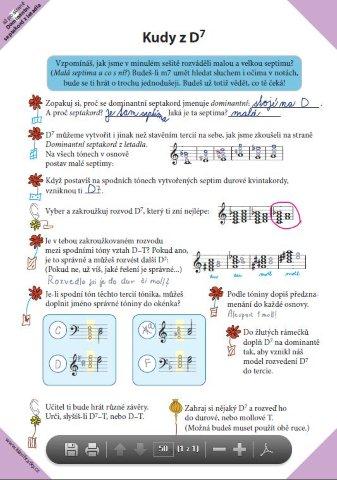 Kudy z D7
Vzpomínáš, jak jsme v minulém sešitě rozváděli malou a velkou septimu?
(Malá septima a co s ní?) Budeš-li m7 umět hledat sluchem i očima v notách,
bude se ti hrát o trochu jednodušeji. Budeš už totiž vědět, co tě čeká!
Zopakuj si, proč se dominantní septakord jmenuje dominantní: stojí na D
A proč septakord? Je tam septima Jaká je ta septima? malá
D7 můžeme vytvořit i jinak než stavěním tercií na sebe, jak jsme zkoušeli na straně
Dominantní septakord z letadla.
Na všech tónech v osnově
postav malé septimy:
Když postavíš na spodních tónech vytvořených septim durové kvintakordy,
vzniknou ti D7.
Vyber a zakroužkuj rozvod D7, který ti zní nejlépe:
Je v tebou zakroužkovaném rozvodu
mezi spodními tóny vztah D–T? Pokud ano,
je to správně a můžeš rozvést další D7:
(Pokud ne, už víš, jaké řešení je správné...)
Rozvedla jsi je do dur či moll?
dur dur moll moll
Je-li spodní tón těchto tercií tónika, můžeš
doplnit jméno tóniny do okénka?
Podle tóniny dopiš předzna-
menání do každé osnovy.
Alespoň 1 moll!
C
D
F
Do žlutých rámečků
doplň D7 na dominantě
tak, aby vznikl náš
model rozvedení D7
do tercie.
Učitel ti bude hrát různé závěry.
Urči, slyšíš-li D7–T, nebo D–T.
Zahraj si nějaký D7 a rozveď ho
do durové, nebo mollové T.
(Možná budeš muset použít obě ruce.)
50 (1 z 1)